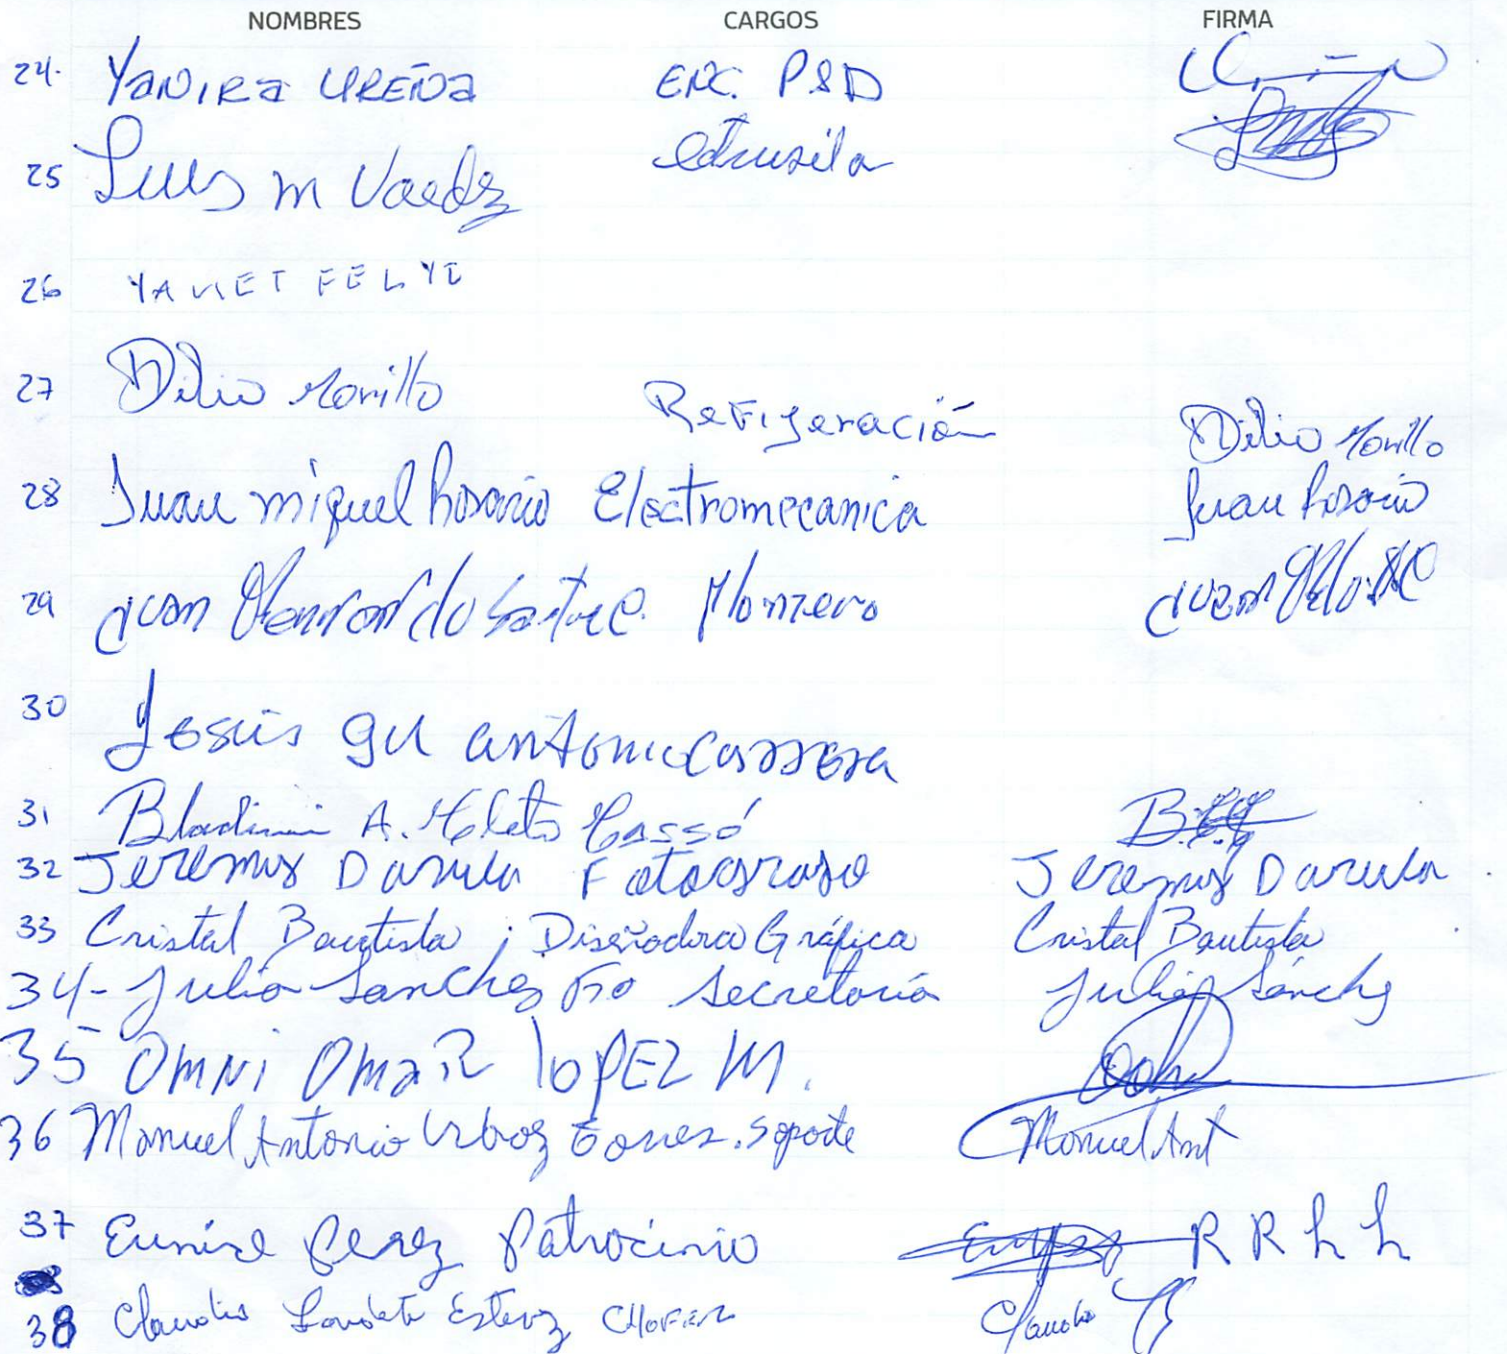 NOMBRES CARGOS FIRMA
24. YANIRA UREÑA ENC. P&D
25 Luis m Valdez
26 YANET FELYI
27 Dilio Morillo Refigeración Dilio Morillo
28 Juan miguel Rosario Electromecanica Juan Rosario
29 Juan Juan
30 Jesús gil antonio Carrera
31 Bladimir A.
32 Jeremy Fotografo Jeremy
33 Cristal Bautista ; Diseñadora Gráfica Cristal Bautista
34- Julia Sanchez Secretaria Julia Sánchez
35 OMNI OMAR LOPEZ M.
36 Manuel Antonio soporte Manuel Ant
37 Eunice Perez Patrocinio RRhh
38 Claudio Estevez CHOFER Claudio